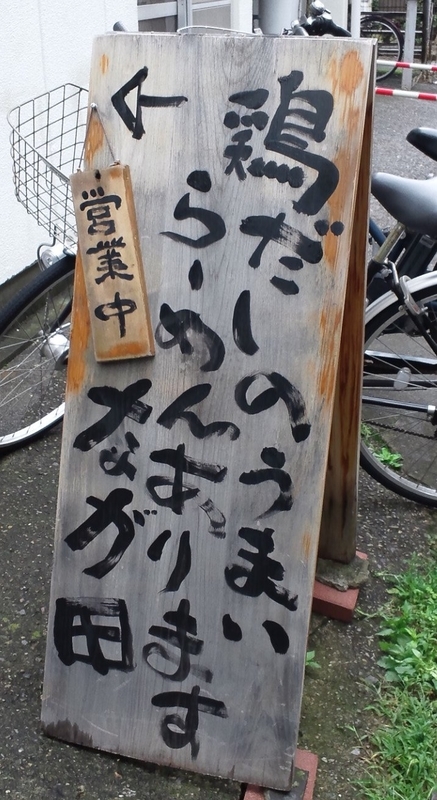 鶏だしのうまい
らーめんあります
なが田
営業中